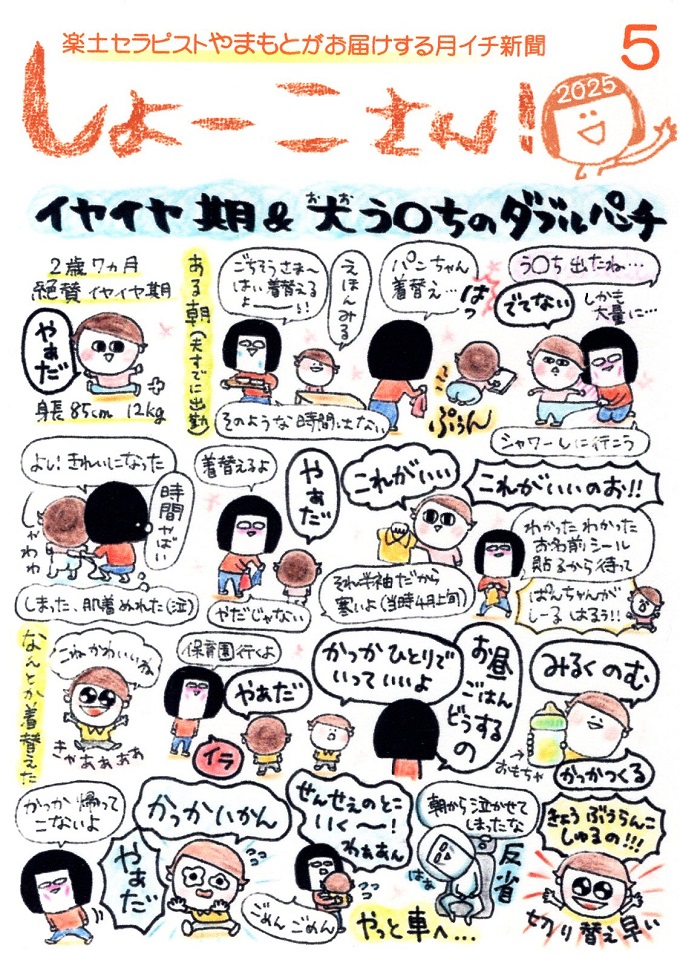 楽土セラピストやまもとがお届けする月イチ新聞
5
しょーこさん!
2025
イヤイヤ期&犬う〇ちのダブルパンチ
おお
2歳7ヵ月
絶賛イヤイヤ期
やぁだ
身長85cm 12kg
ある朝(夫すでに出勤)
ごちそうさま〜
はい着替える
よ〜!!
えほんみる
そのような時間は無い
パンちゃん
着替え…
はっ
ぷぅん
う〇ち出たね…
でてない
しかも
大量に…
シャワーしに行こう
よし!きれいになった
時間やばい
しゃわわ
しまった、肌着ぬれた(泣)
着替えるよ
やぁだ
やだじゃない
これがいい
それ半袖だから
寒いよ(当時4月上旬)
これがいいのお!!
わかったわかった
お名前シール
貼るから待って
ぱんちゃんが
しーるはるぅ!!
なんとか着替えた
こねかわいいね
きゃあぁぁぁ
保育園行くよ
やぁだ
イラ
かっかひとりで
いっていいよ
お昼
ごはん
どうする
の
みるくのむ
おもちゃ
かっかつくる
かっか帰って
こないよ
やぁだ
かっかいかん
せんせぇのとこ
いく〜!
わぁぁん
ごめんごめん
やっと車へ…
朝から泣かせて
しまったな
はな
反省
きょうぶぅらんこ
しゅるの!!!
切り替え早い